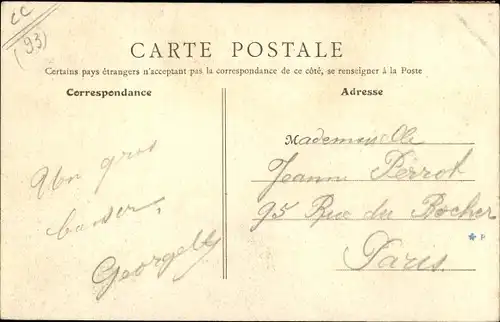 CC
(93)
CARTE POSTALE
Certains pays étrangers n'acceptant pas la correspondance de ce côté, se renseigner à la Poste
Correspondance
Un gros
baiser
Georgette
Adresse
Mademoiselle
Jeanne Perrot
95 Rue du Rocher
Paris